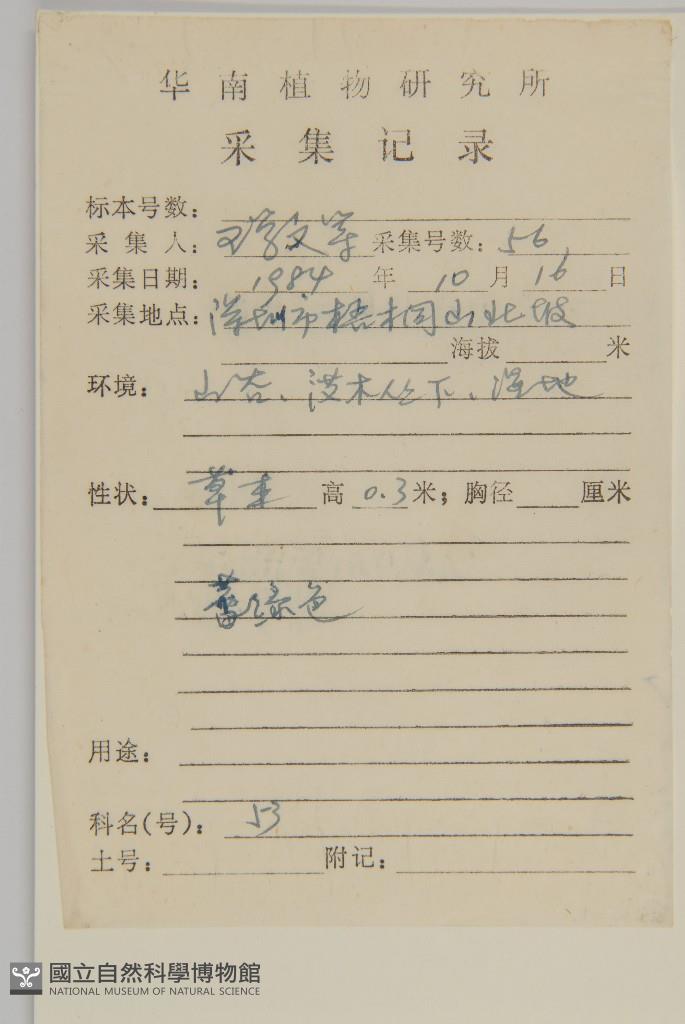 华南植物研究所
采集记录
标本号数：
采集人：王学文等 采集号数：56
采集日期：1984年10月16日
采集地点：深圳市梧桐山北坡
海拔 米
环境：山谷、灌木丛下、湿地
性状：草本 高0.3米；胸径 厘米
蕾绿色
用途：
科名(号)：53
土号： 附记：
國立自然科學博物館
NATIONAL MUSEUM OF NATURAL SCIENCE